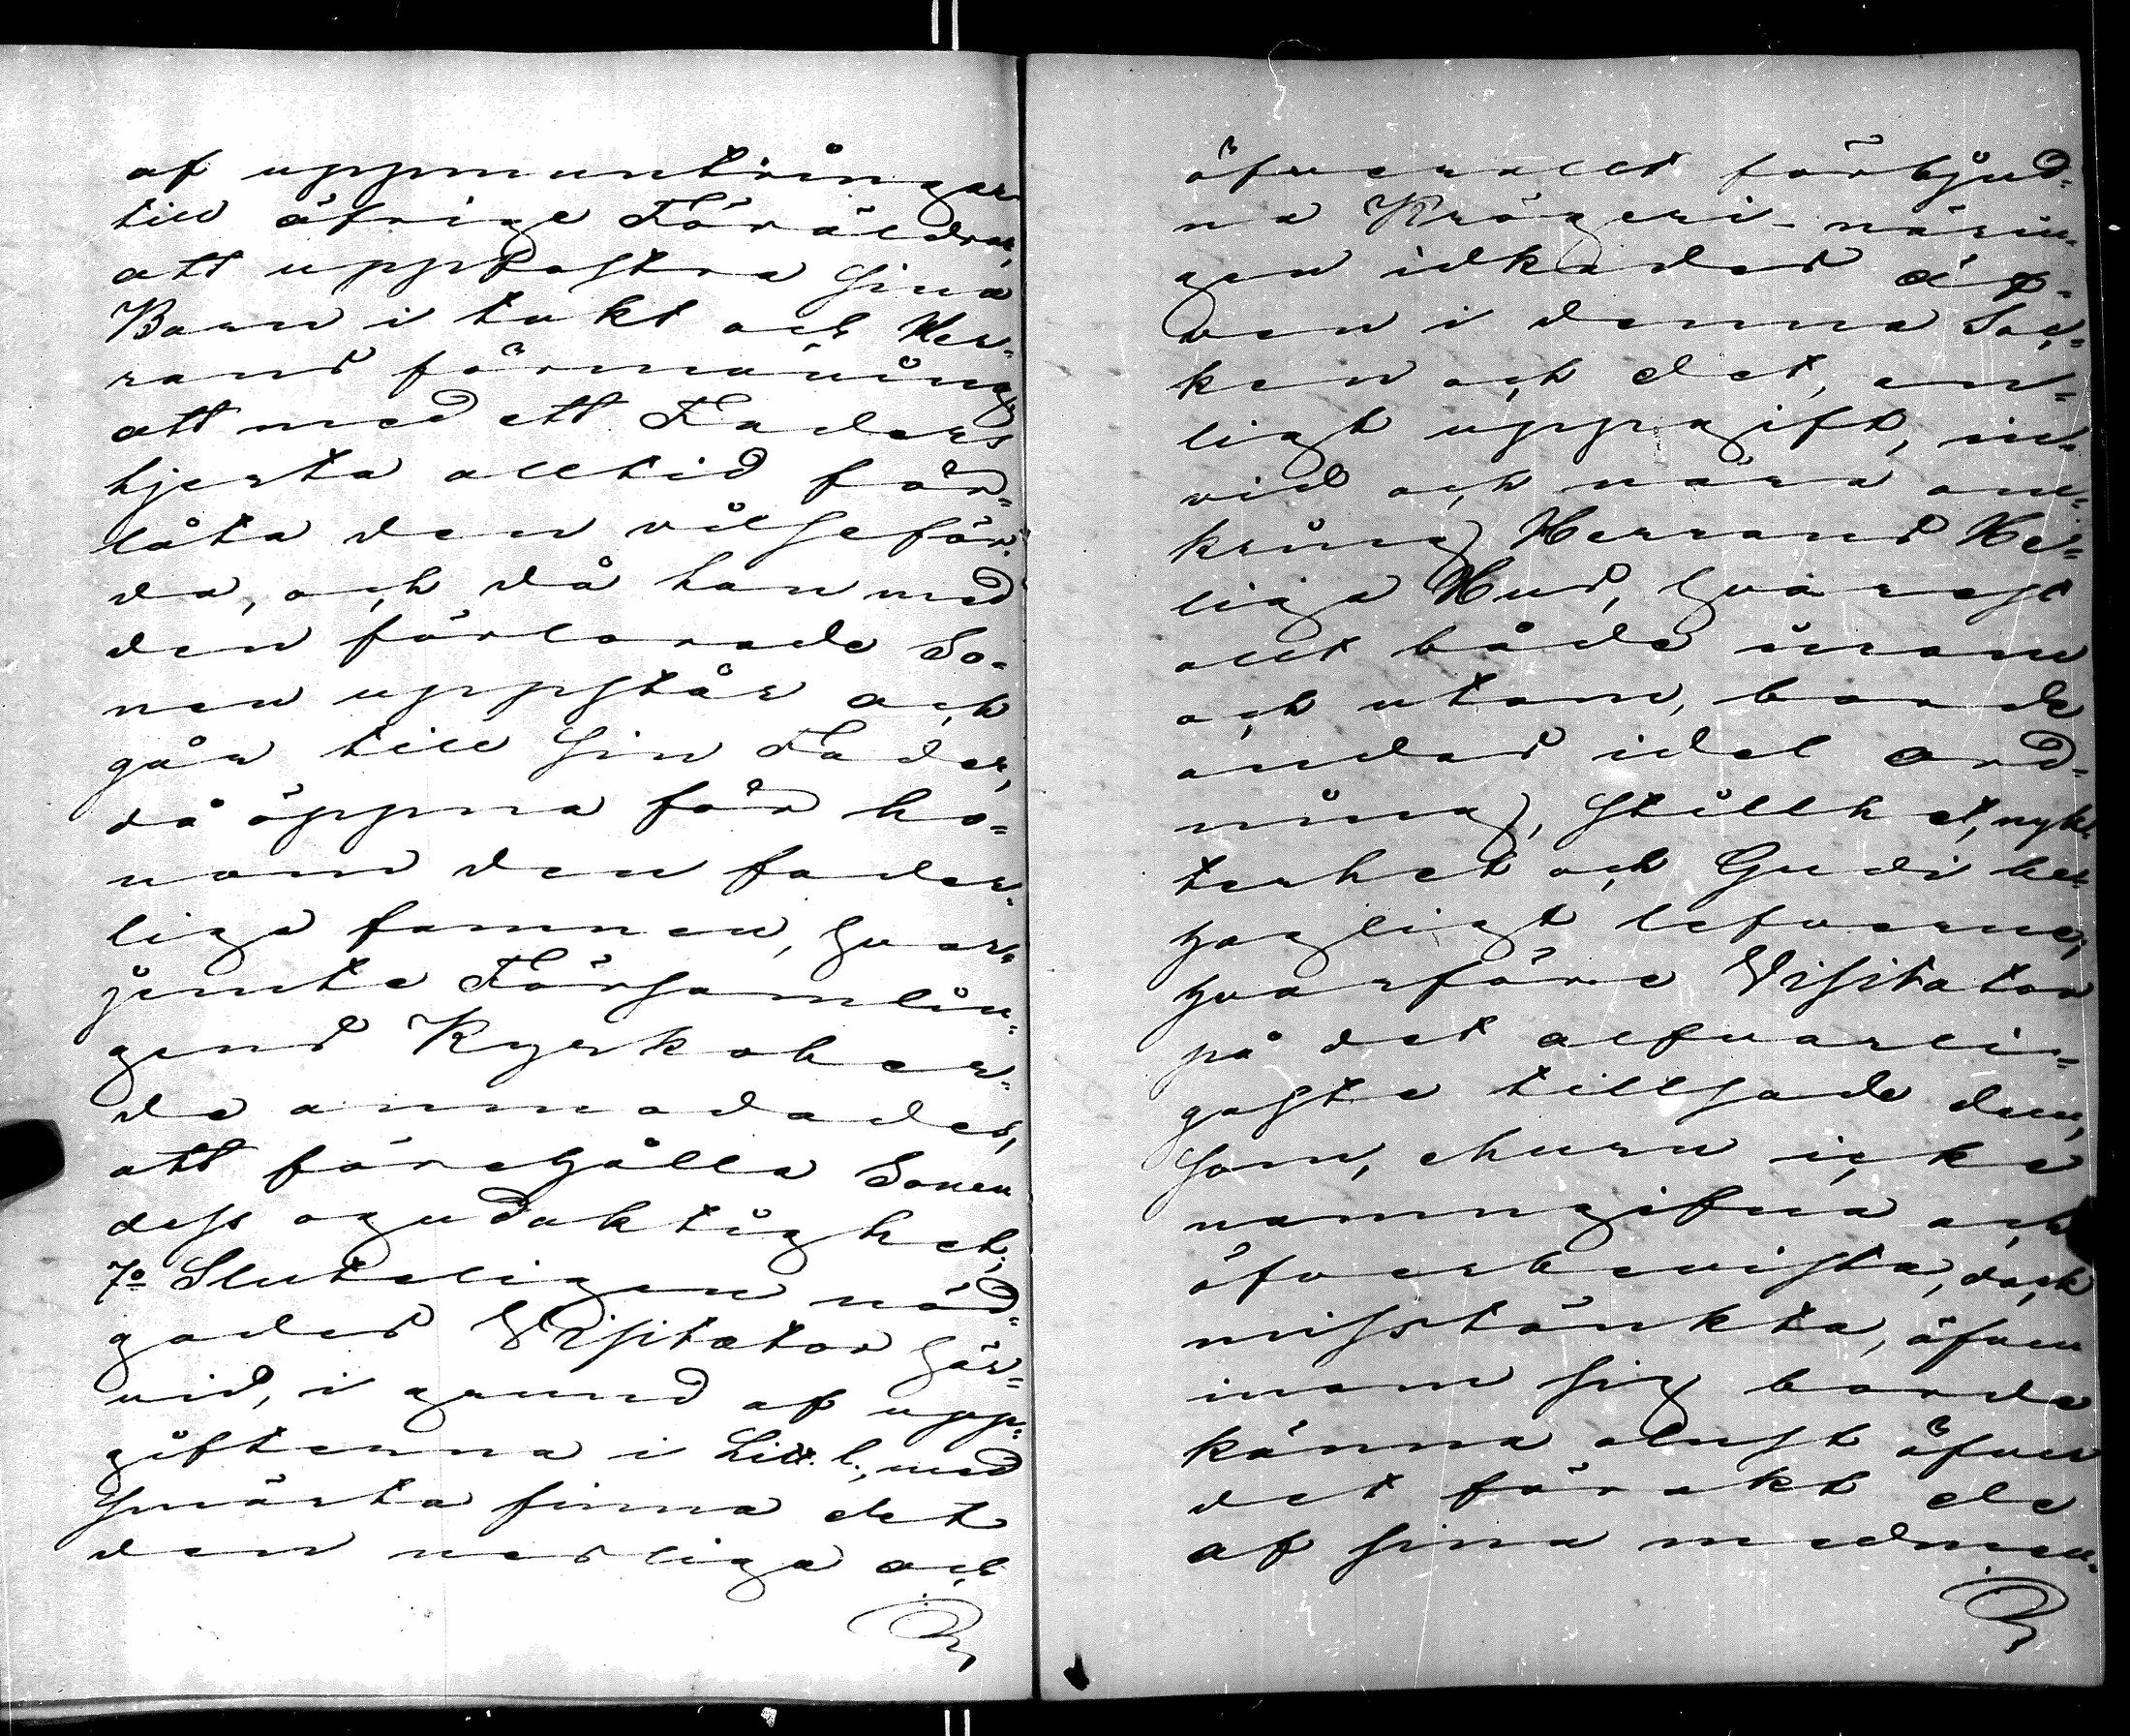 af uppmuntringar
till öfrige Föräldrar,
att uppfostra sina
Barn i tukt och Her-
rans förmaning
att med ett Faders
hjerta alltid för-
låta den vilseför-
da, och då han med
den förlorade So-
nen uppstår och
går till sin Fader,
då öppna för ho-
nom den fader-
liga famnen, hvar-
jemte Församlin-
gens Kyrkoher-
de anmodades,
att förehålla Sonen
dess ogudaktighet;
7o Sluteligen nöd-
gades Visitator här-
vid, i grund af upp-
gifterna i Litt. l., med
smärta finna det
den usliga och
öfverallt förbjud-
na Krögeri-närin-
gen idkades äf-
ven i denna Soc-
ken och det, en-
ligt uppgift, in-
vid och nära om-
kring Herrans He-
liga Hus, hvarest
allt både innom
och utom, borde
andas idel ord-
ning, stillhet, nyk-
terhet och Gudi be-
hagligt lefverne;
hvarföre Visitator
på det alfvarli-
gaste tillsade dem,
som, ehuru icke
namngifna och
öfverbevista, dock
misstänkta, äfven
inom sig borde
känna olust öfver
det förakt de
af sina medmen-